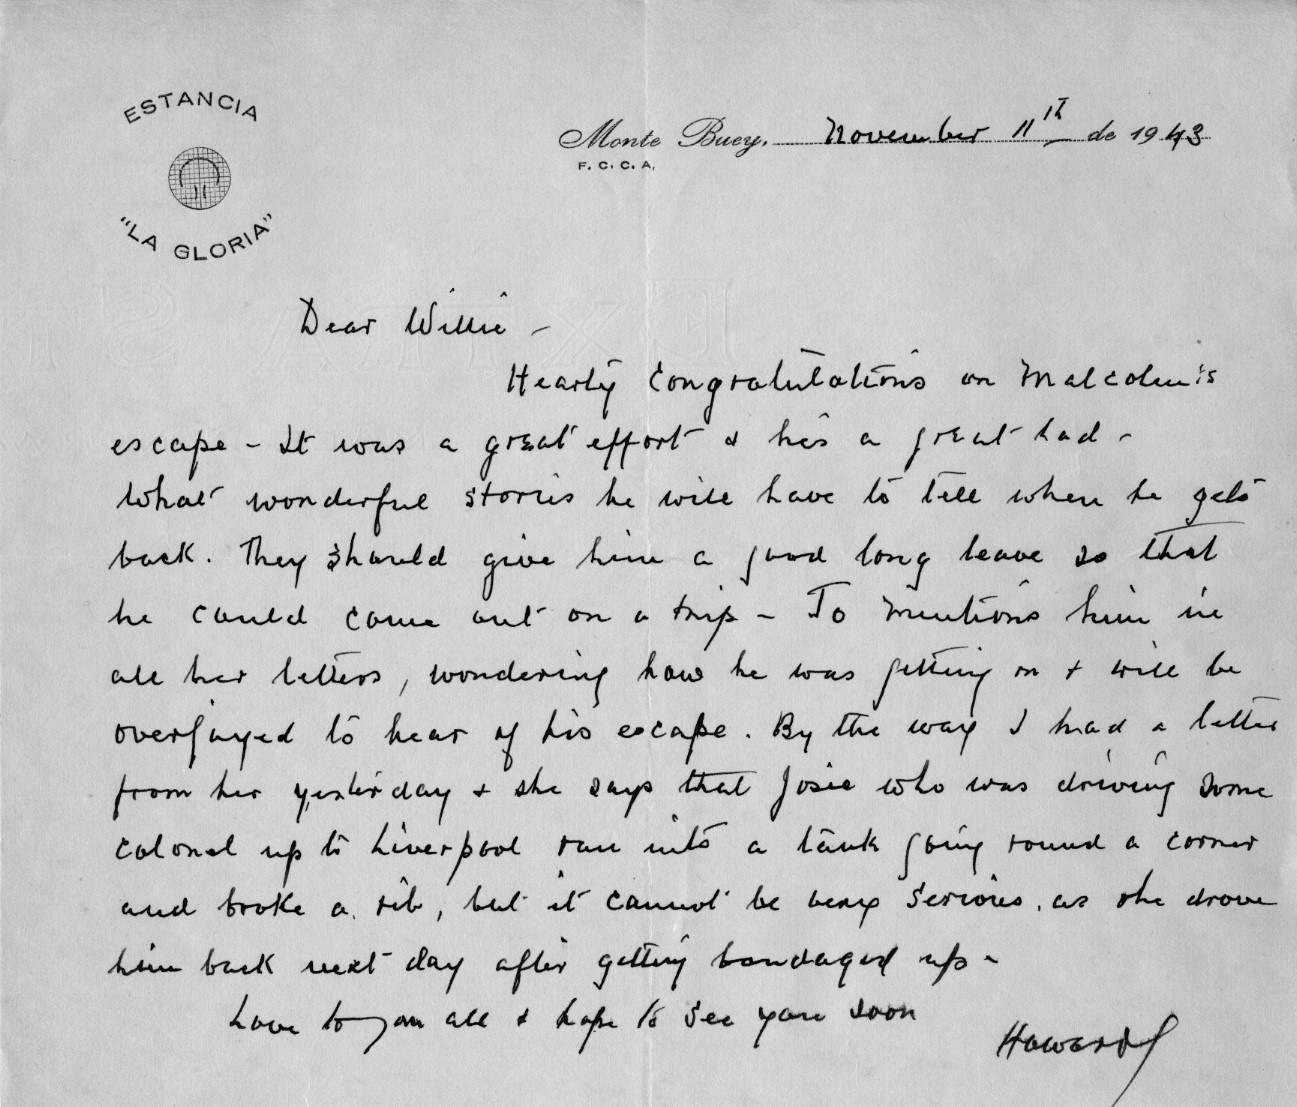 ESTANCIA
"LA GLORIA"
Monte Buey, November 11th de 1943
F. C. C. A.
Dear Willie -
Hearty congratulations on Malcolm's
escape - It was a great effort & he's a great lad -
What wonderful stories he will have to tell when he gets
back. They should give him a good long leave so that
he could come out on a trip - Jo mentions him in
all her letters, wondering how he was getting on & will be
overjoyed to hear of his escape. By the way I had a letter
from her yesterday & she says that Josie who was driving some
colonel up to Liverpool ran into a tank going round a corner
and broke a rib, but it cannot be very serious, as she drove
him back next day after getting bandaged up -
Love to you all & hope to see you soon
Howard